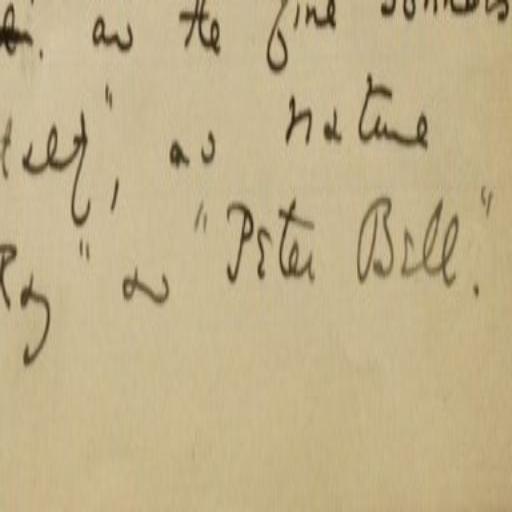 as the fine sonnets
itself", as nature
Roy" or "Peter Bell."